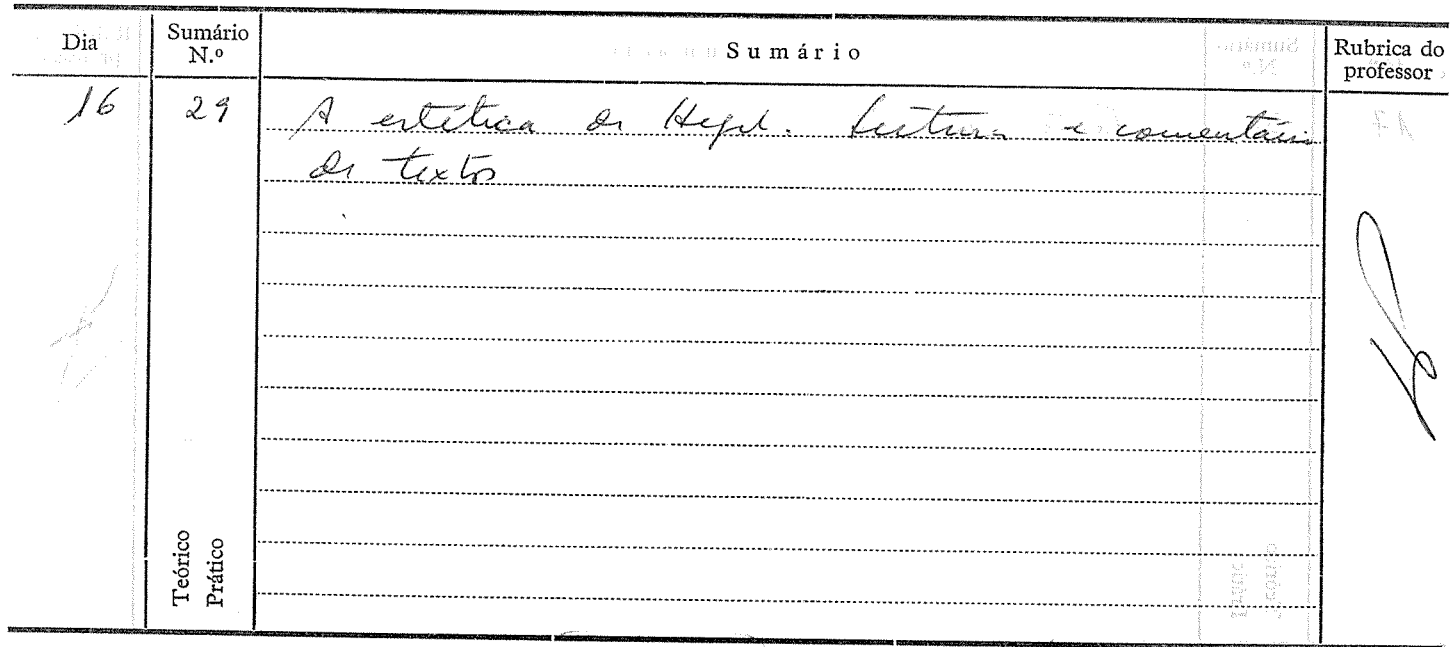 Dia Sumário N.º Sumário Rubrica do professor
16 29 A estética de Hegel. Leitura e comentário
de textos
Teórico
Prático